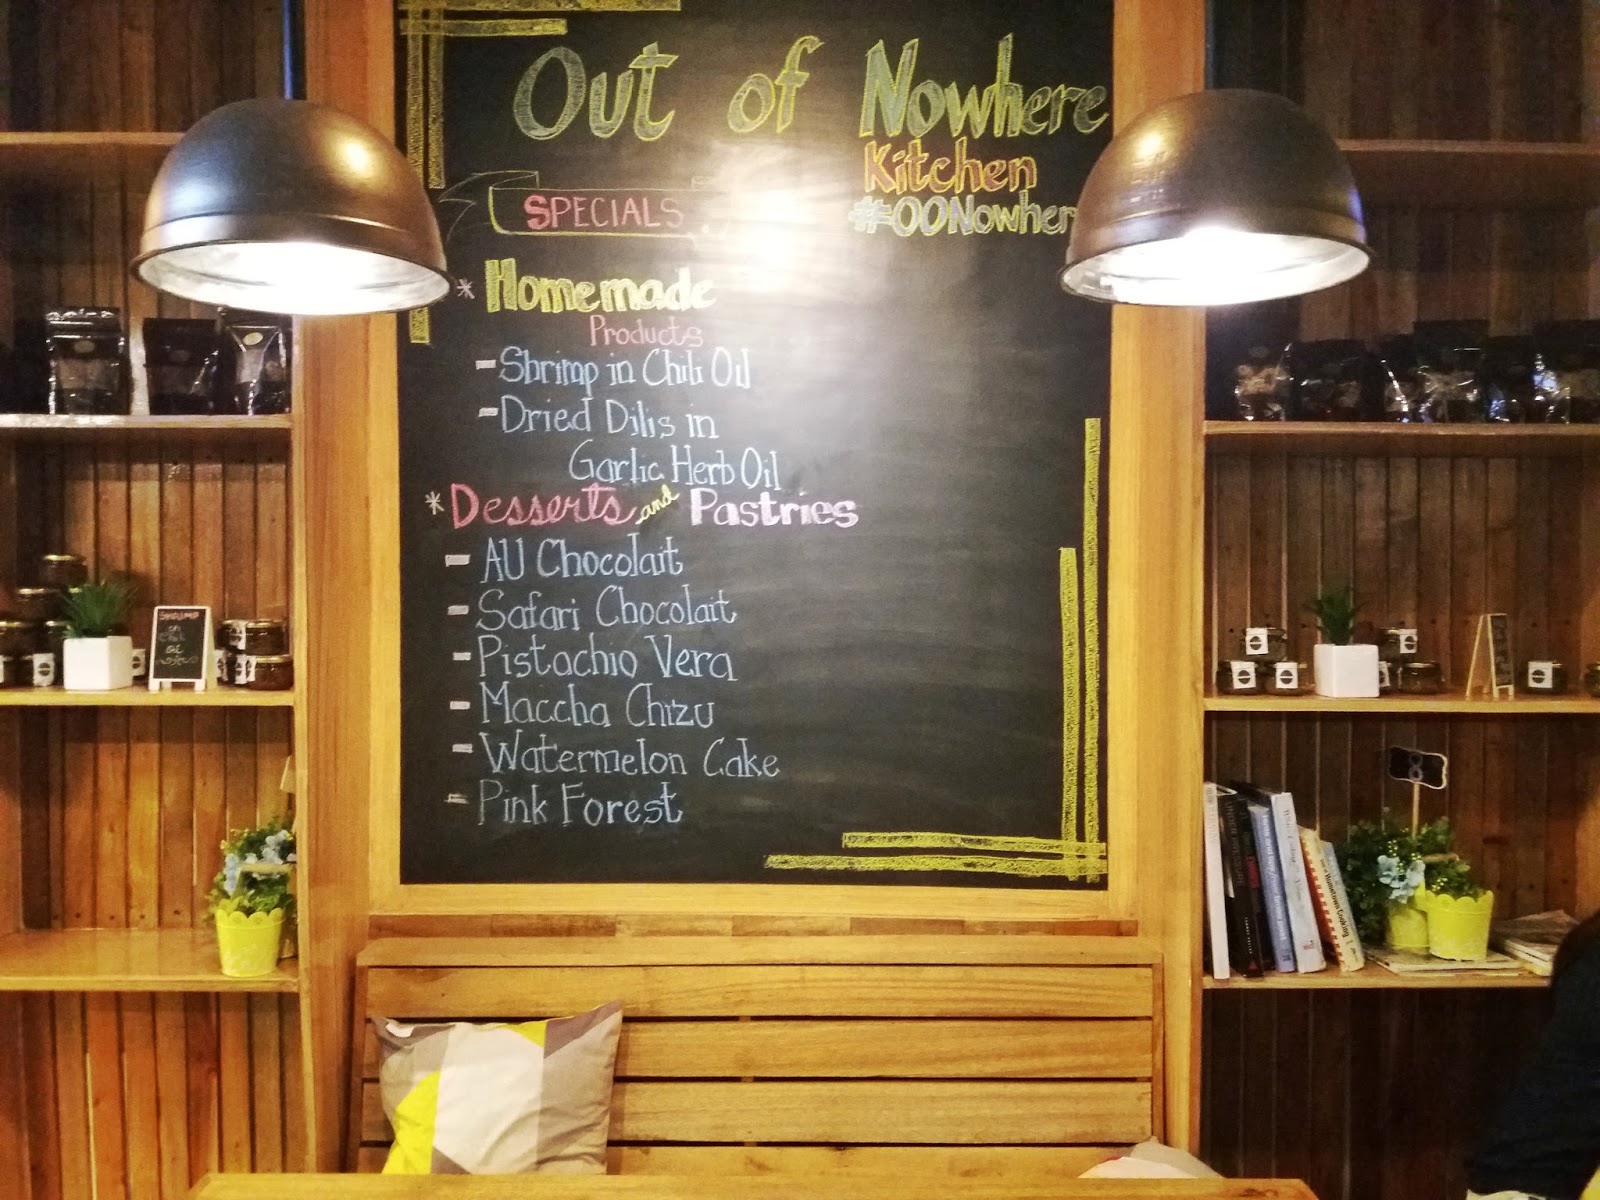 Out of Nowhere
Kitchen
SPECIALS
#OONowher
* Homemade
Products
- Shrimp in Chili Oil
- Dried Dilis in
Garlic Herb Oil
* Desserts and Pastries
- AU Chocolait
- Safari Chocolait
- Pistachio Vera
- Maccha Chizu
- Watermelon Cake
- Pink Forest
SHRIMP
in
Chili
Oil
Hometown Cooking
8